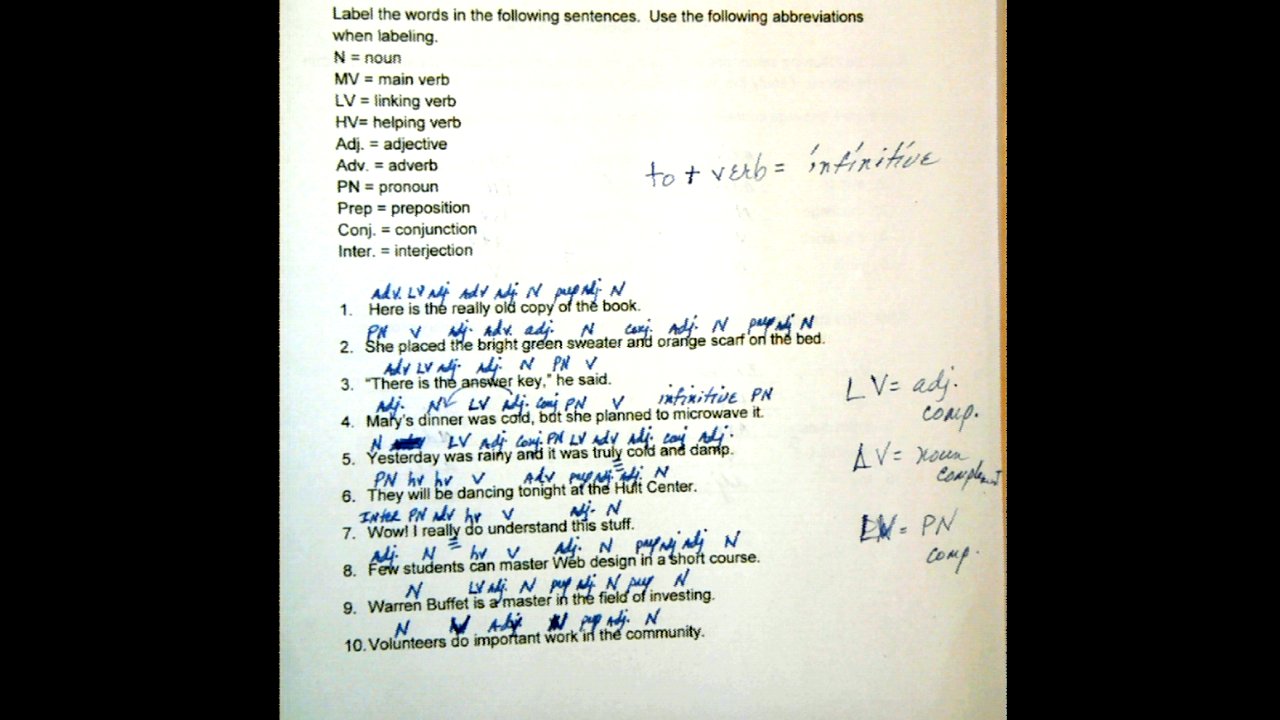 Label the words in the following sentences. Use the following abbreviations
when labeling.
N = noun
MV = main verb
LV = linking verb
HV= helping verb
Adj. = adjective
Adv. = adverb
PN = pronoun
to + verb = infinitive
Prep = preposition
Conj. = conjunction
Inter. = interjection
Adv. LV Adj Adv Adj N prep Adj N
1. Here is the really old copy of the book.
PN V Adj. Adv. adj. N conj. Adj. N prep Adj N
2. She placed the bright green sweater and orange scarf on the bed.
Adv LV Adj. Adj. N PN V
3. "There is the answer key," he said.
Adj. N LV Adj. conj PN V infinitive PN
4. Mary's dinner was cold, but she planned to microwave it.
LV = adj.
comp.
N LV Adj conj. PN LV Adv Adj. conj Adj.
5. Yesterday was rainy and it was truly cold and damp.
LV = noun
PN hv hv V Adv prep Adj Adj. N
6. They will be dancing tonight at the Hult Center.
Inter PN Adv hv V Adj. N
7. Wow! I really do understand this stuff.
LV = PN
comp.
Adj. N hv V Adj. N prep Adj Adj N
8. Few students can master Web design in a short course.
N LV Adj. N prep Adj N prep N
9. Warren Buffet is a master in the field of investing.
N V Adj N prep Adj. N
10. Volunteers do important work in the community.